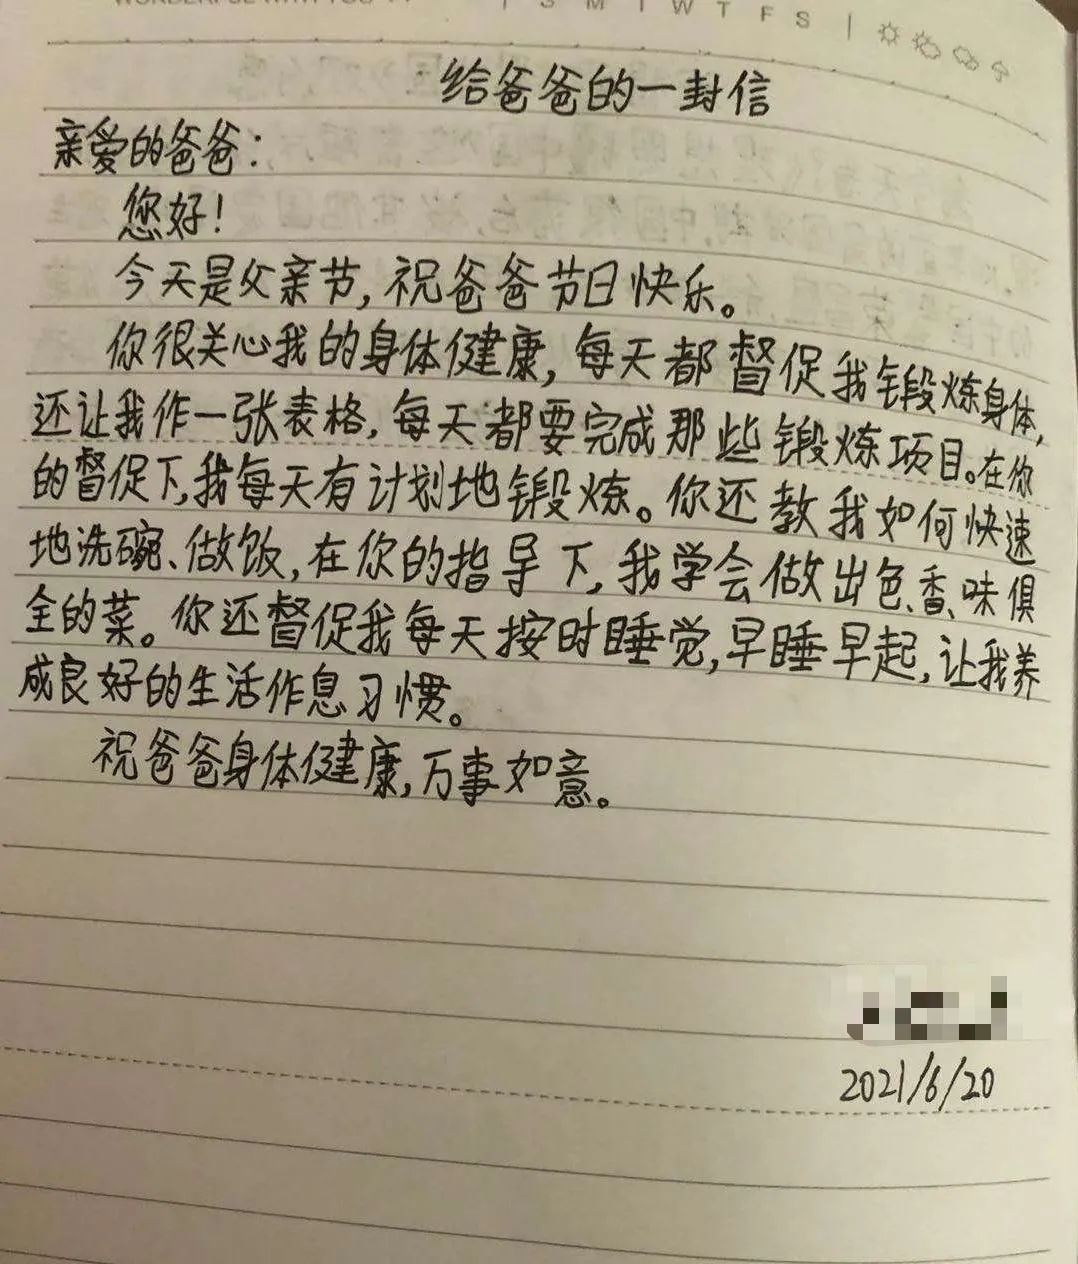 S M T W T F S
给爸爸的一封信
亲爱的爸爸：
您好！
今天是父亲节,祝爸爸节日快乐。
你很关心我的身体健康,每天都督促我锻炼身体,
还让我作一张表格,每天都要完成那些锻炼项目。在你
的督促下,我每天有计划地锻炼。你还教我如何快速
地洗碗、做饭,在你的指导下,我学会做出色、香、味俱
全的菜。你还督促我每天按时睡觉,早睡早起,让我养
成良好的生活作息习惯。
祝爸爸身体健康,万事如意。
2021/6/20